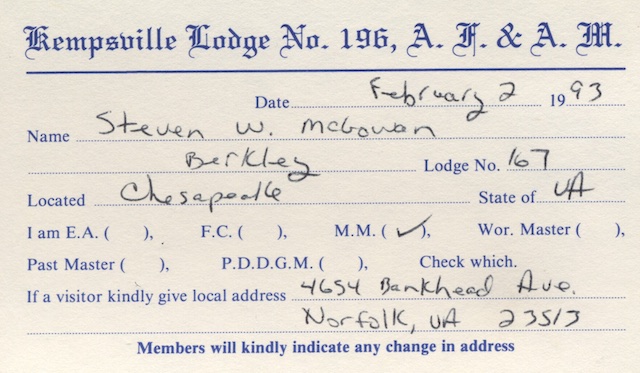 Kempsville Lodge No. 196, A. F. & A. M.
Date February 2 1993
Name Steven W. McGowan
Berkley Lodge No. 167
Located Chesapeake State of VA
I am E.A. ( ), F.C. ( ), M.M. ( ✓ ), Wor. Master ( ),
Past Master ( ), P.D.D.G.M. ( ), Check which.
If a visitor kindly give local address 4654 Bankhead Ave.
Norfolk, VA 23513
Members will kindly indicate any change in address